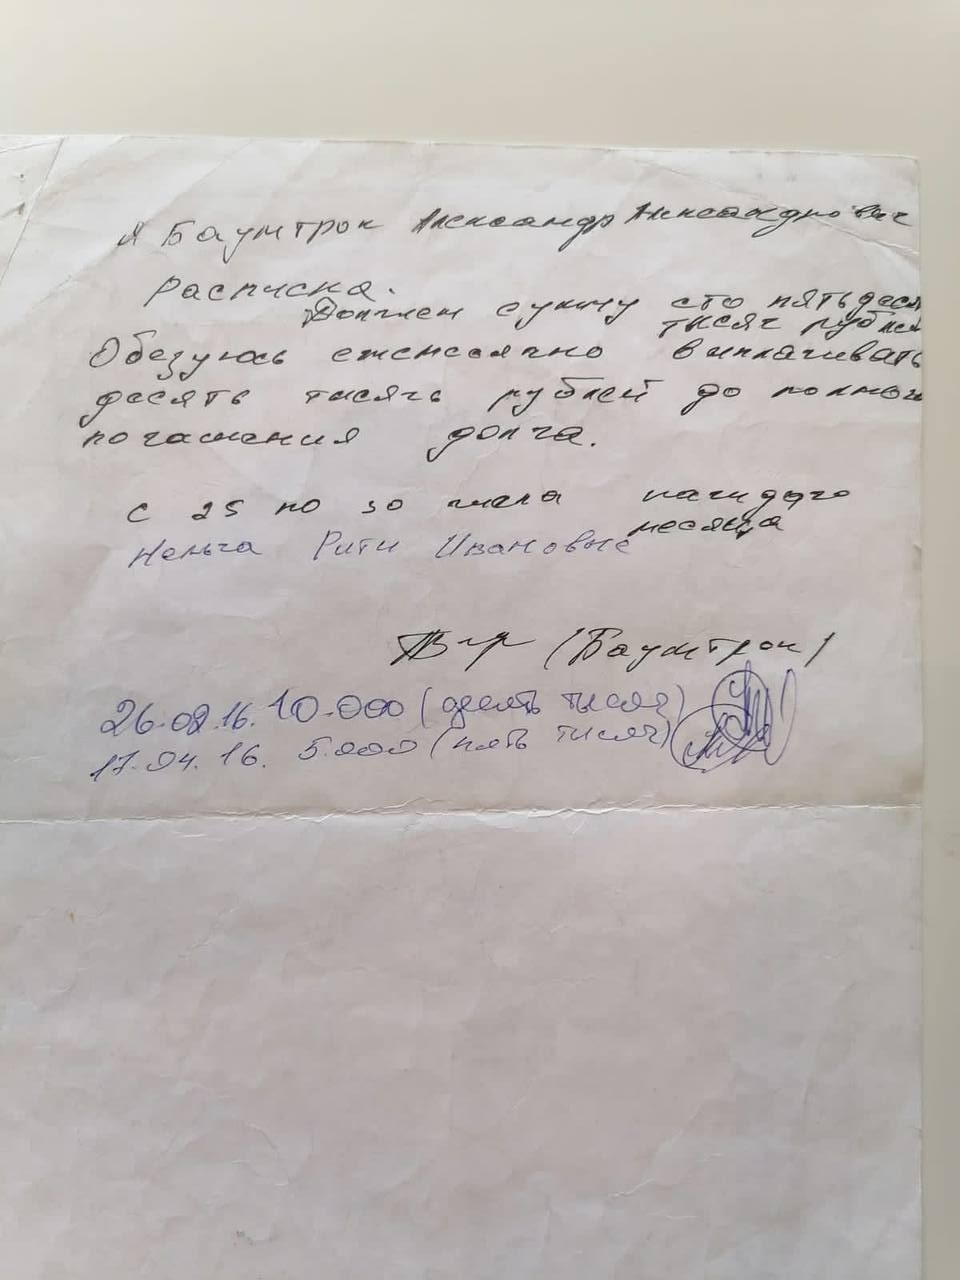 Я Баумтрок Александр Александрович
Расписка.
Должен сумму сто пятьдеся
тысяч рублей
Обезуюсь ежемесячно выплачивать
десять тысячь рублей до полной
погашения долга.
с 25 по 30 числа каждого
месяца
Рити Ивановне
(Баумтрок)
26.02.16. 10.000 (десять тысяч)
17.04.16. 5.000 (пять тысяч)